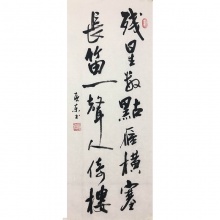 残星数點雁横塞
長笛一聲人倚樓